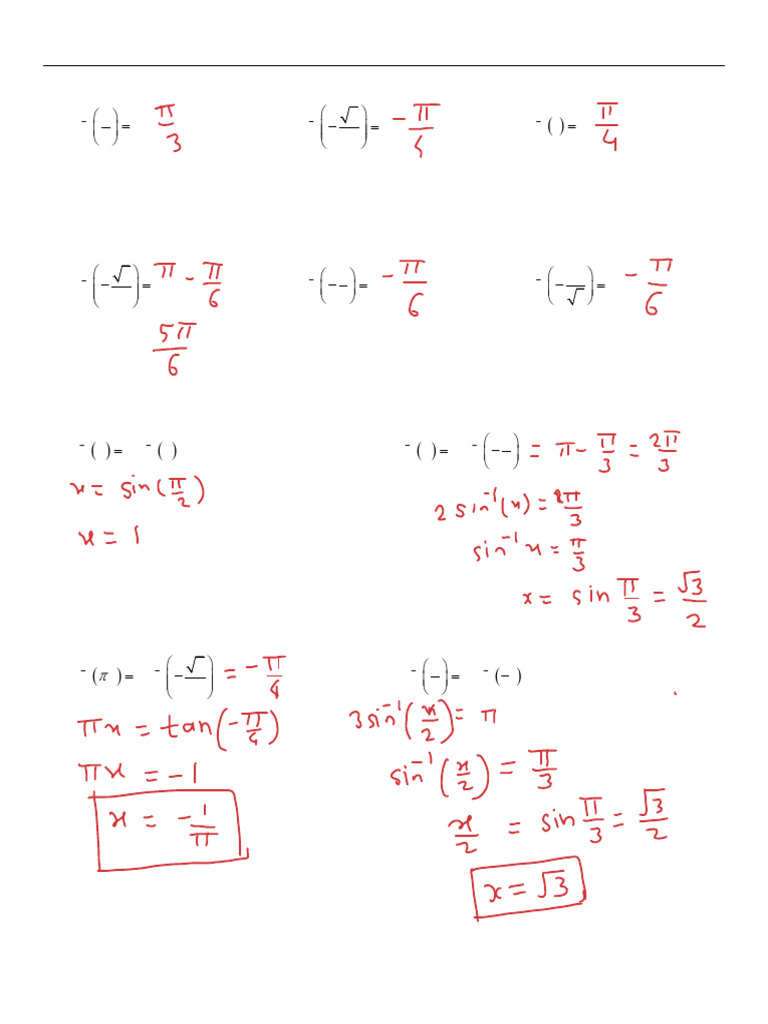 ⁻(–)= π/3
⁻(−√‾)= −π/4
⁻( )= π/4
⁻(−√‾)= π − π/6
5π/6
⁻(−–)= −π/6
⁻(−‾√)= −π/6
⁻( )= ⁻( )
x = sin(π/2)
x = 1
⁻( )= ⁻(−–) = π − π/3 = 2π/3
2 sin⁻¹(x) = 2π/3
sin⁻¹x = π/3
x = sin π/3 = √3/2
⁻(π )= ⁻(−√‾) = −π/4
πx = tan(−π/4)
πx = −1
x = −1/π
⁻(–)= ⁻(−)
3sin⁻¹(x/2) = π
sin⁻¹(x/2) = π/3
x/2 = sin π/3 = √3/2
x = √3